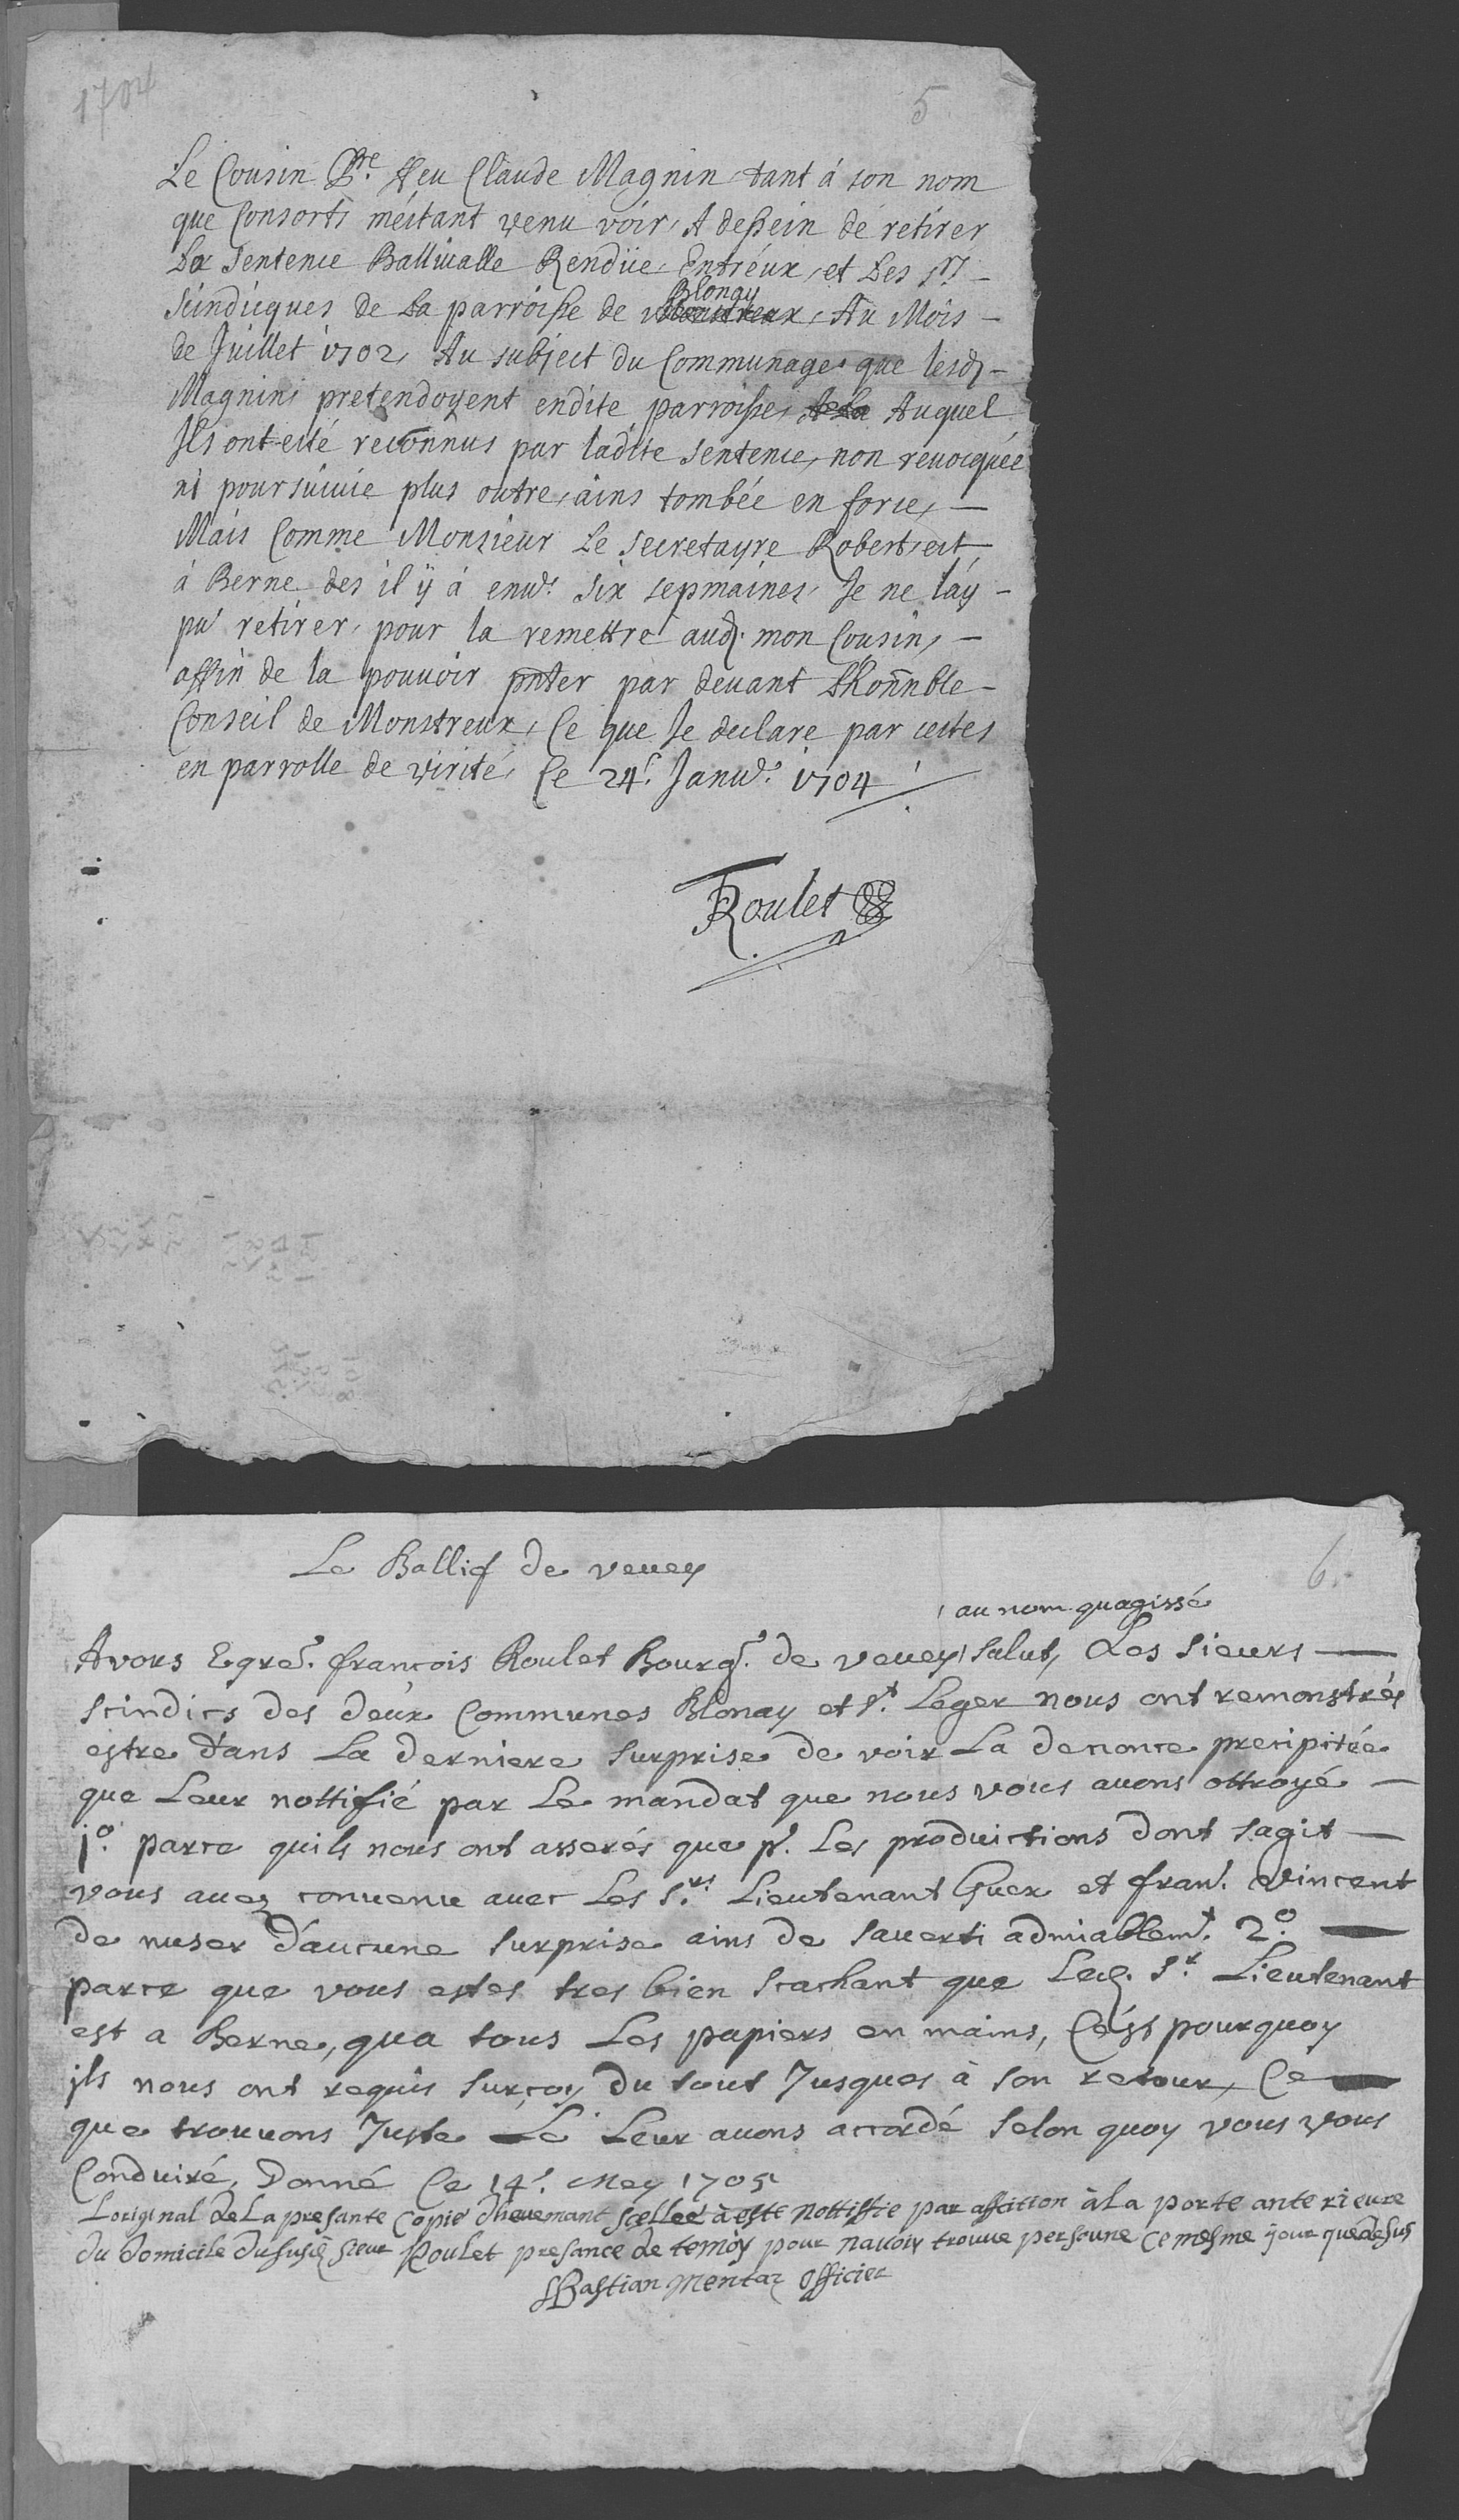 1704
5
Le Cousin Pre. feu Claude Magnin, tant á son nom
que Consorts, méstant venu voir, A dessein de retirer
La Sentence Balliualle Rendüe, Entréux, et Les Srs
Scindicques de La parroisse de Monstreux, Blonay Au Mois
de Juillet 1702, Au subject du Communage, que lesd.
Magnins pretendoyent endite parroisse, de La Auquel
Ils ont esté reconnus par ladite Sentence, non reuocquée
ni poursuiuie plus outre, ains tombée en force,
Mais Comme Monsieur Le Secretayre Robert, est
à Berne des il ÿ á enud. six sepmaines, Je ne láy
pú retirer, pour la remettre aud. mon Cousin,
affin de la pouvoir pnter par deuant Lhonnble
Conseil de Monstreux, Ce que Je declare par cestes
en parrolle de virité, Ce 24e. Janud. 1704
FRoulet
6.
Le Ballif de veuey
au nom quagissé
A vous Egred. francois Roulet Bourg. de veuey, salut, Les Sieurs
scindics des deux Communes Blonay et St. Leger nous ont remonstrés
estre dans La derniere surprise de voir La denonce precipitée
que Leur nottifié par Le mandat que nous vous auons ottroyé
1o. parce quils nous ont asserés que p. Les productions dont sagit
vous auez conuenu auec Les Srs. Lieutenant Guex et fran. Vincent
de nuser d'aucune surprise ains de sauerti admiablemt. 2o.
parce que vous estes tres bien scachant que Led. Sr. Lieutenant
est a Berne, qua tous Les papiers en mains, Cést pourquoy
ils nous ont requis surçoy du tout Jusques à son retour, Ce
que trouuons Juste Le Leur auons accordé selon quoy vous vous
Conduiré, Donné Ce 14e. Mey 1705
Loriginal de La presante Copie dheuemant scellée à este nottiffie par affittion à La porte anterieure
du domicile du susd. sieur Roulet presance de temoy pour nauoir trouue persoune ce mesme jour que desus
SBastian Mentaz officier